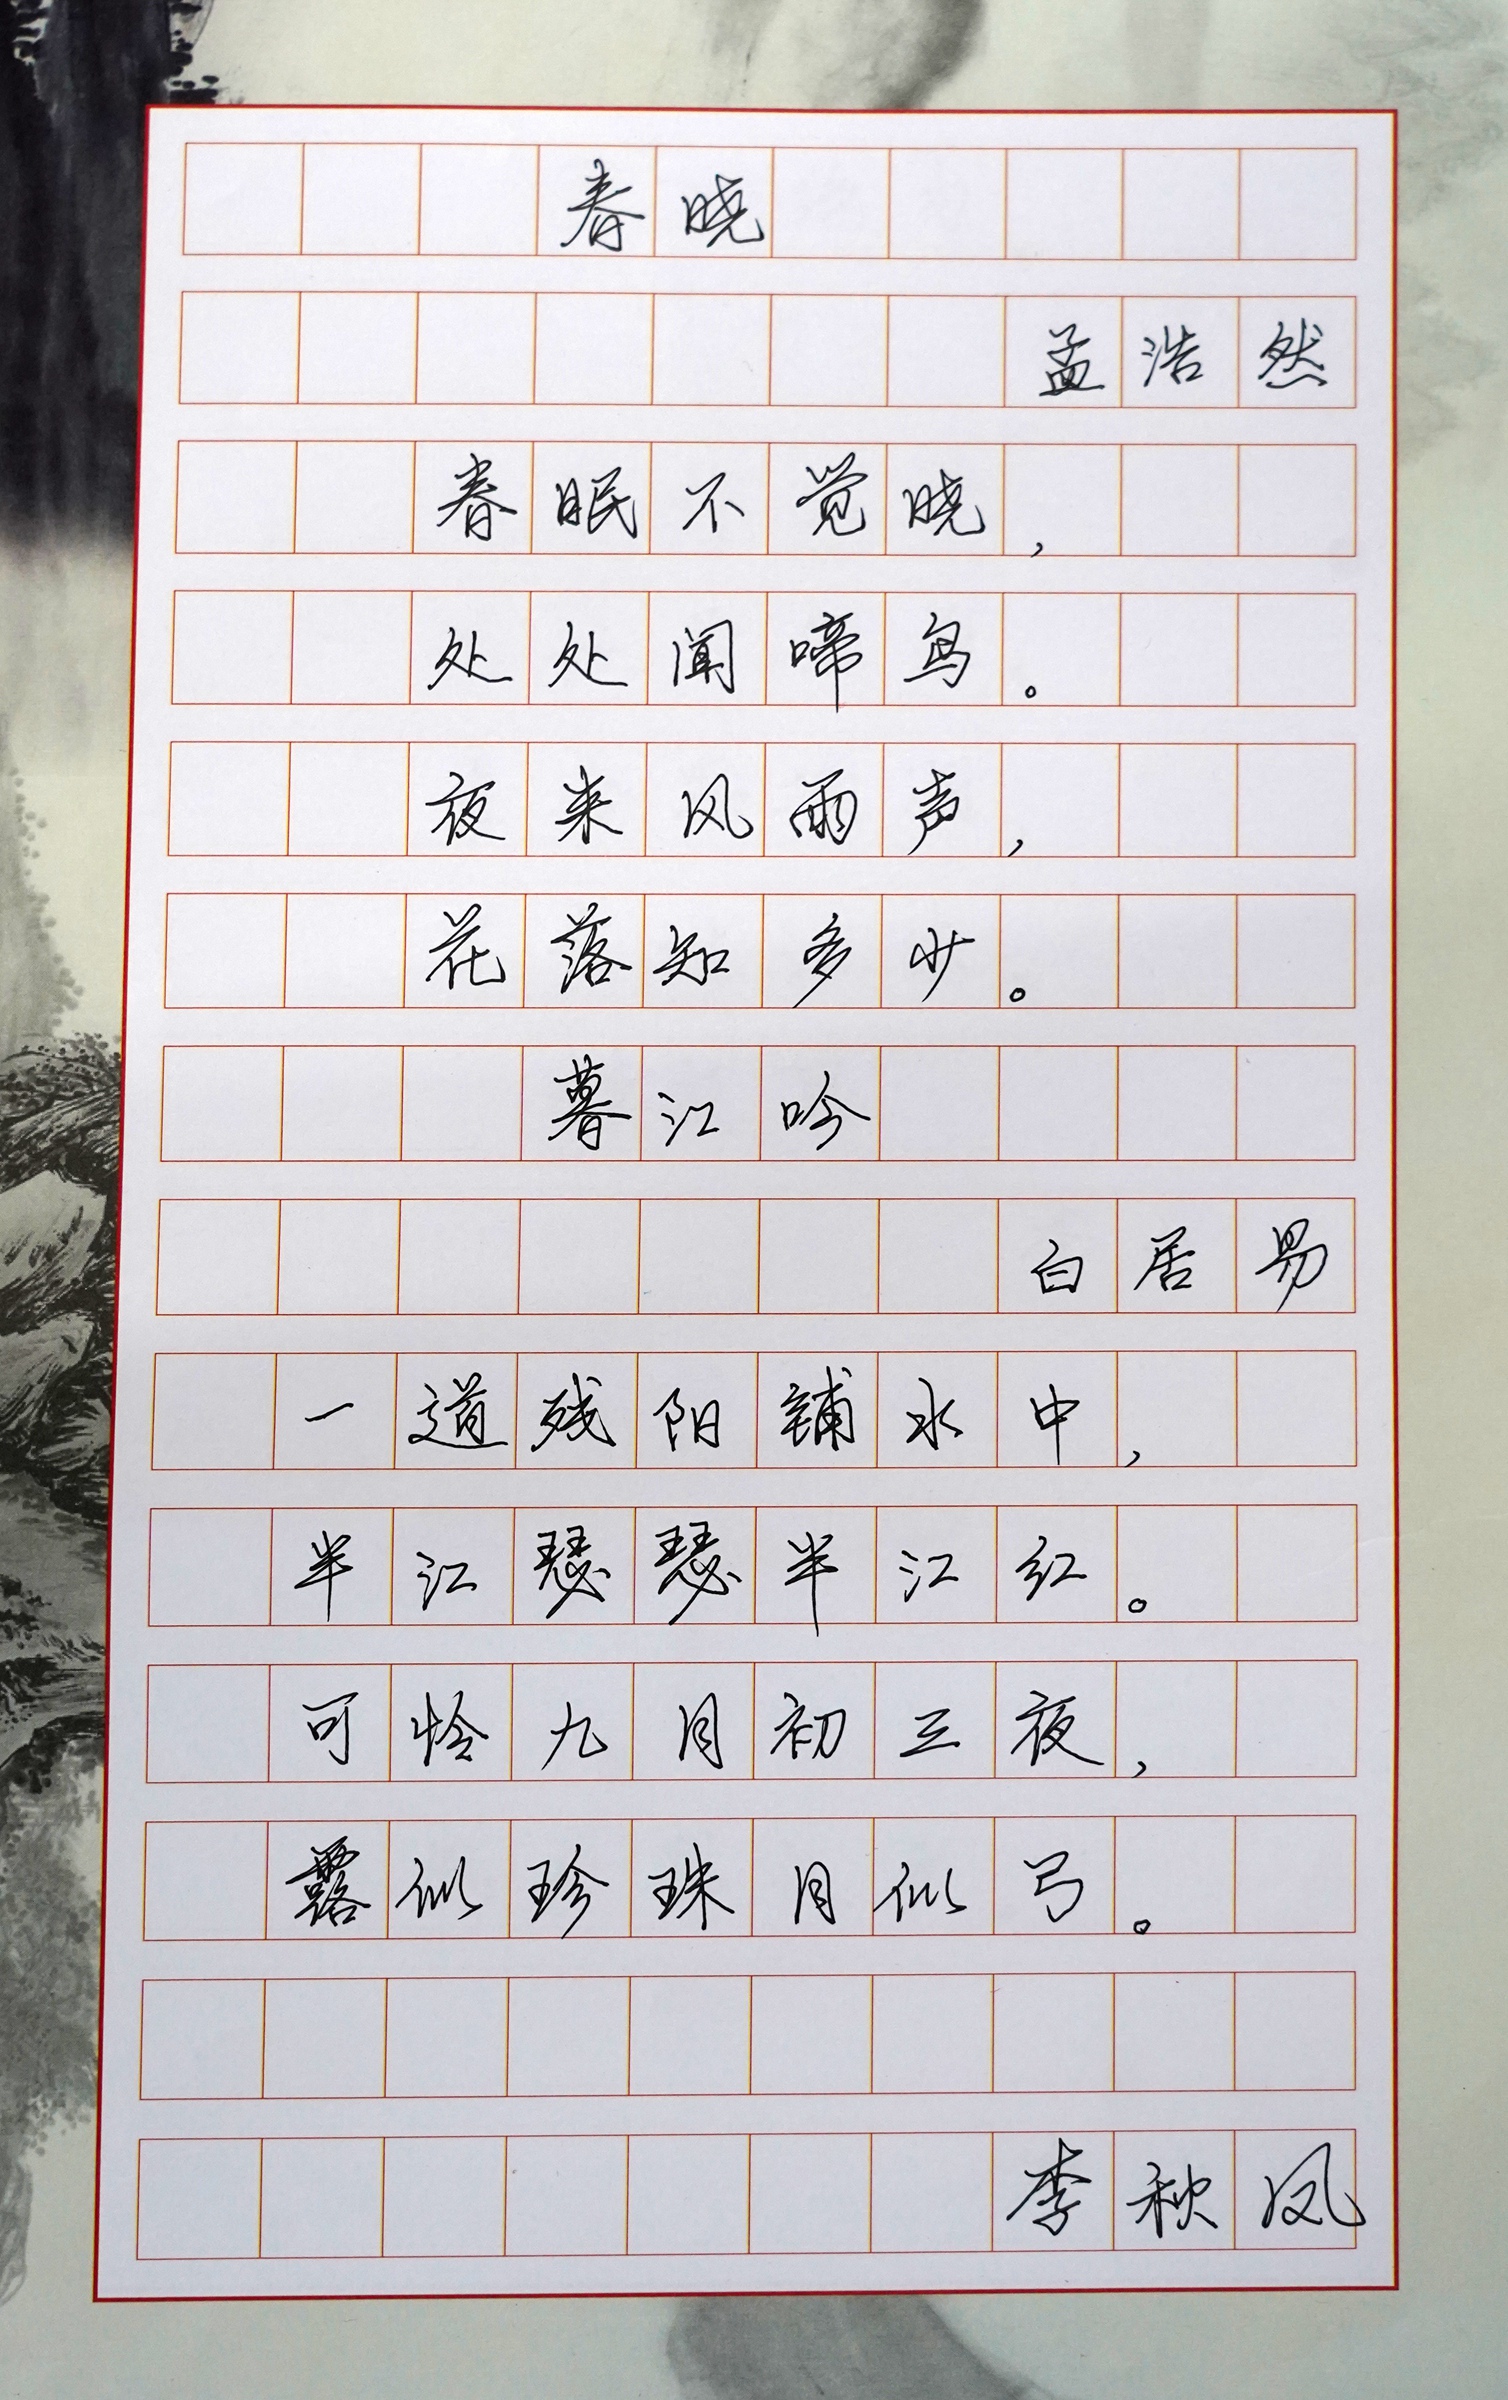 春晓
孟浩然
春眠不觉晓，
处处闻啼鸟。
夜来风雨声，
花落知多少。
暮江吟
白居易
一道残阳铺水中，
半江瑟瑟半江红。
可怜九月初三夜，
露似珍珠月似弓。
李秋凤